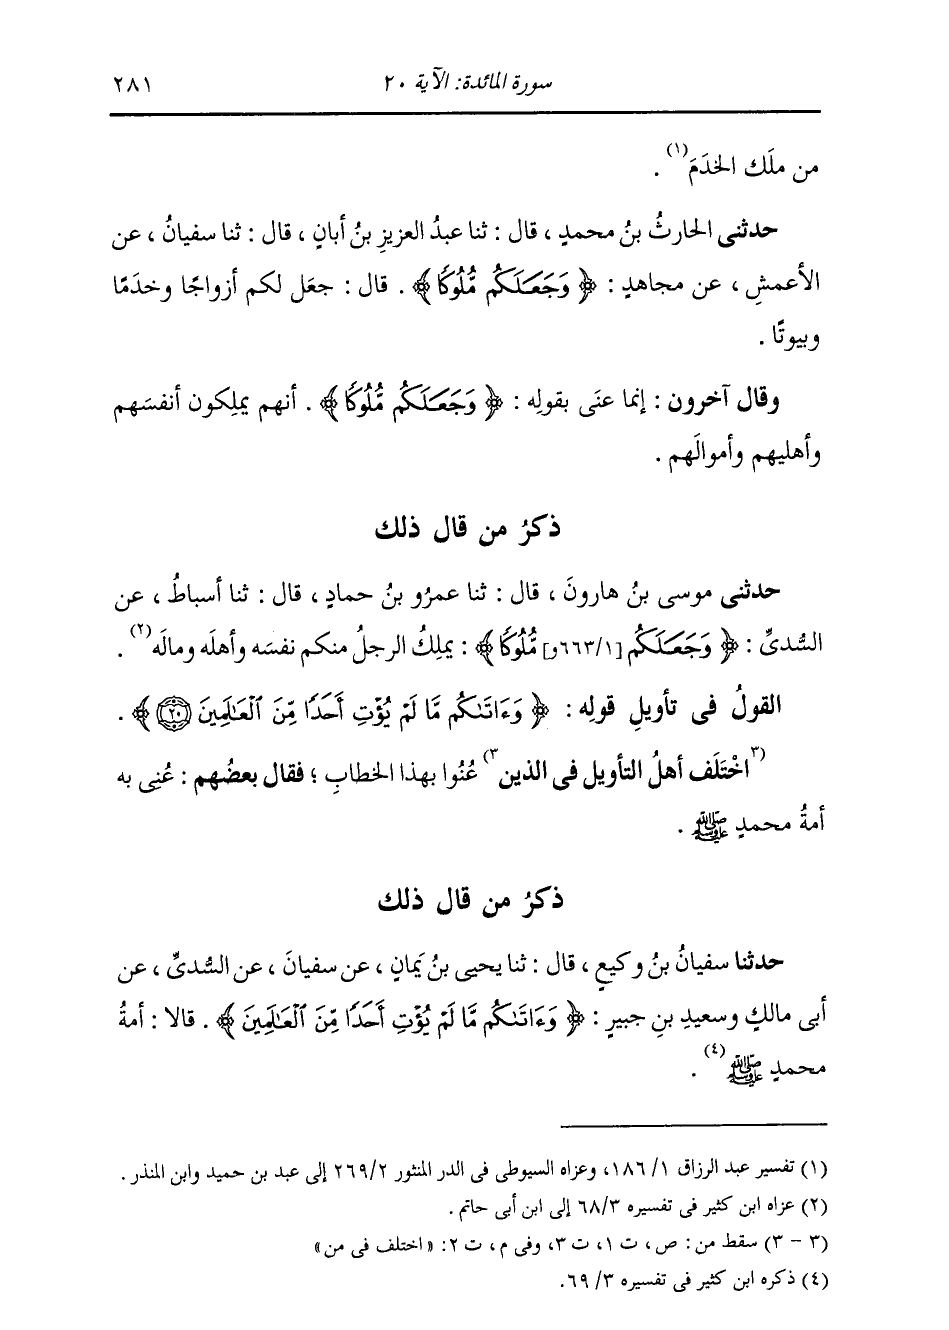 سورة المائدة: الآية ٢٠ ٢٨١
من ملَك الخدَمَ(١) .
حدثنى الحارثُ بنُ محمدٍ ، قال : ثنا عبدُ العزيزِ بنُ أبانٍ ، قال : ثنا سفيانُ ، عن
الأعمشِ ، عن مجاهدٍ : ﴿ وَجَعَلَكُم مُّلُوكًا ﴾ . قال : جعَل لكم أزواجًا وخدَمًا
وبيوتًا .
وقال آخرون : إنما عنَى بقولِه : ﴿ وَجَعَلَكُم مُّلُوكًا ﴾ . أنهم يملِكون أنفسَهم
وأهليهم وأموالَهم .
ذكرُ من قال ذلك
حدثنى موسى بنُ هارونَ ، قال : ثنا عمرُو بنُ حمادٍ ، قال : ثنا أسباطُ ، عن
السُّدىِّ : ﴿ وَجَعَلَكُم [٦٦٣/١و] مُّلُوكًا ﴾ : يملِكُ الرجلُ منكم نفسَه وأهلَه ومالَه(٢) .
القولُ فى تأويلِ قولِه : ﴿ وَءَاتَىٰكُم مَّا لَمْ يُؤْتِ أَحَدًا مِّنَ ٱلْعَـٰلَمِينَ (٢٠) ﴾ .
(٣اخْتَلَف أهلُ التأويل فى الذين٣) عُنُوا بهذا الخطابِ ؛ فقال بعضُهم : عُنِى به
أمةُ محمدٍ ﷺ .
ذكرُ من قال ذلك
حدثنا سفيانُ بنُ وكيعٍ ، قال : ثنا يحيى بنُ يَمانٍ ، عن سفيانَ ، عن السُّدىِّ ، عن
أبى مالكٍ وسعيدِ بنِ جبيرٍ : ﴿ وَءَاتَىٰكُم مَّا لَمْ يُؤْتِ أَحَدًا مِّنَ ٱلْعَـٰلَمِينَ ﴾ . قالا : أمةُ
محمدٍ ﷺ(٤) .
(١) تفسير عبد الرزاق ١/ ١٨٦، وعزاه السيوطى فى الدر المنثور ٢٦٩/٢ إلى عبد بن حميد وابن المنذر .
(٢) عزاه ابن كثير فى تفسيره ٦٨/٣ إلى ابن أبى حاتم .
(٣ - ٣) سقط من : ص ، ت ١، ت ٣، وفى م ، ت ٢: « اختلف فى من»
(٤) ذكره ابن كثير فى تفسيره ٣/ ٦٩.